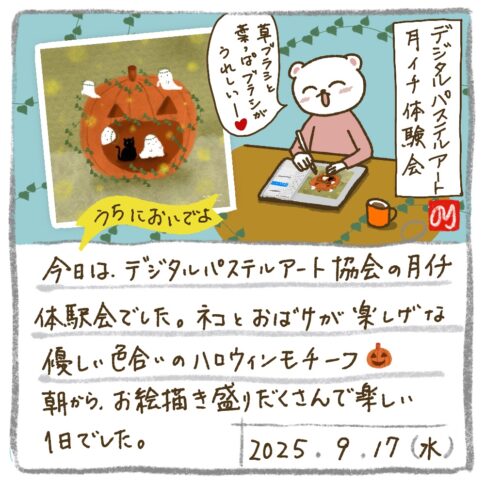 デジタルパステルアート
月イチ体験会
草ブラシと
葉っぱブラシが
うれしいー♥
うちにおいでよ
今日は、デジタルパステルアート協会の月イチ
体験会でした。ネコとおばけが楽しげな
優しい色合いのハロウィンモチーフ🎃
朝から、お絵描き盛りだくさんで楽しい
1日でした。
2025.9.17(水)